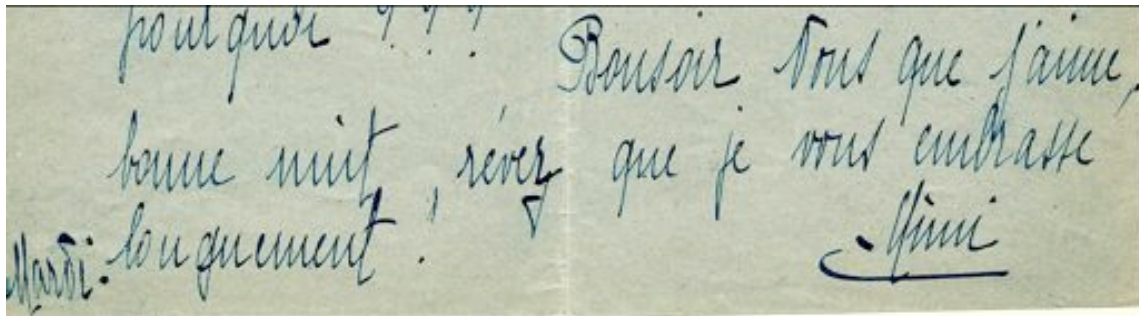 pourquoi ??? Bonsoir Vous que j'aime,
bonne nuit, rêvez que je vous embrasse
longuement ! Mimi
Mardi.